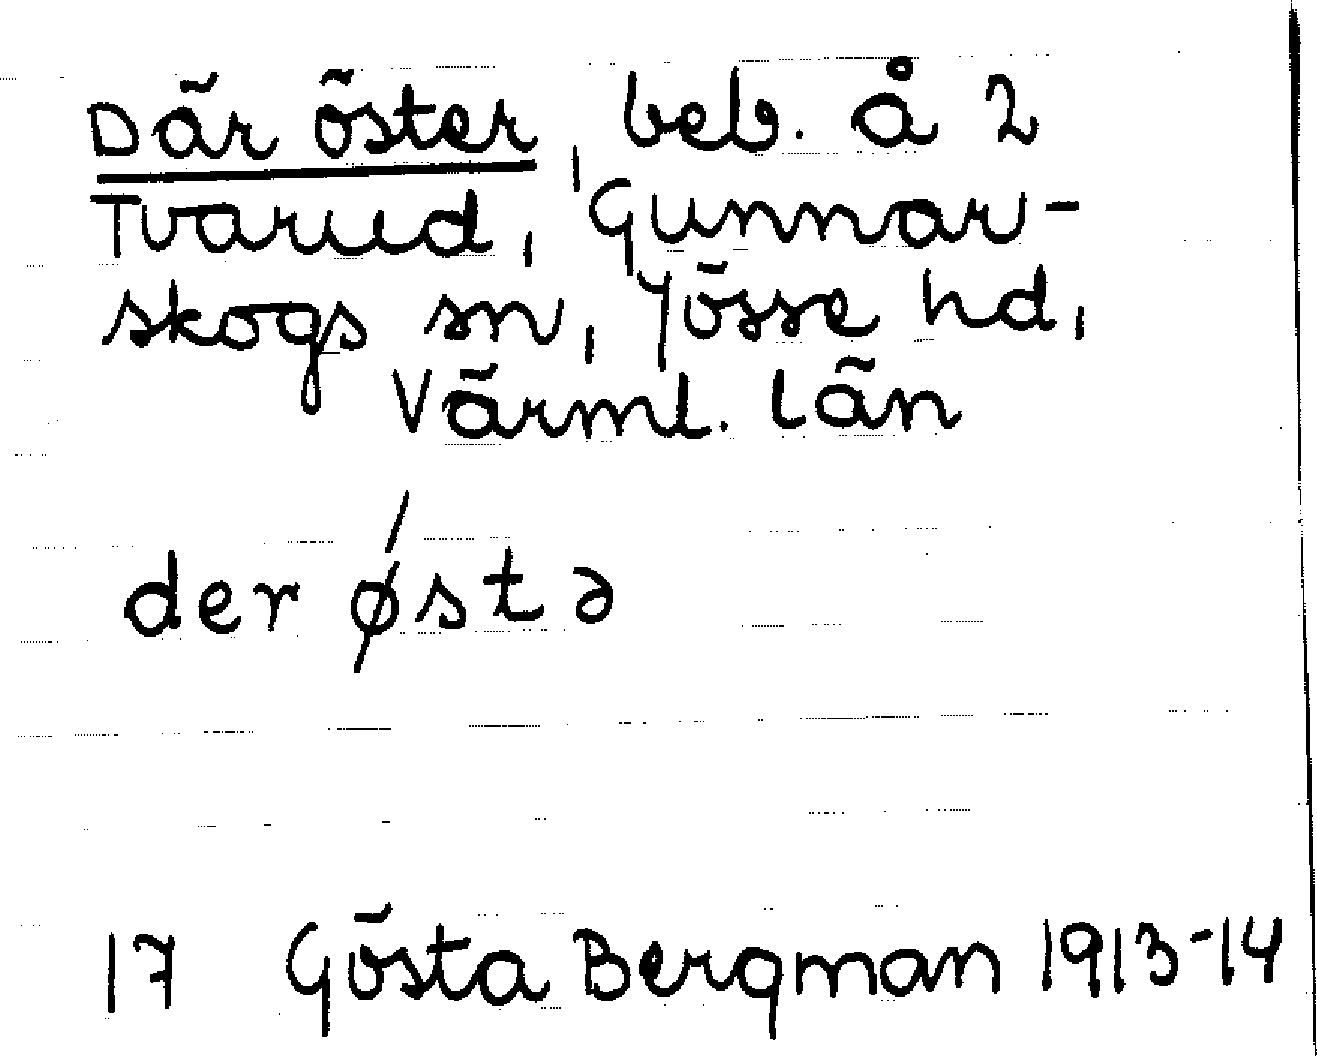 Där öster, beb. å 2
Tvarud, Gunnar-
skogs sn, Jösse hd,
Värml. län
der østə
17 Gösta Bergman 1913-14